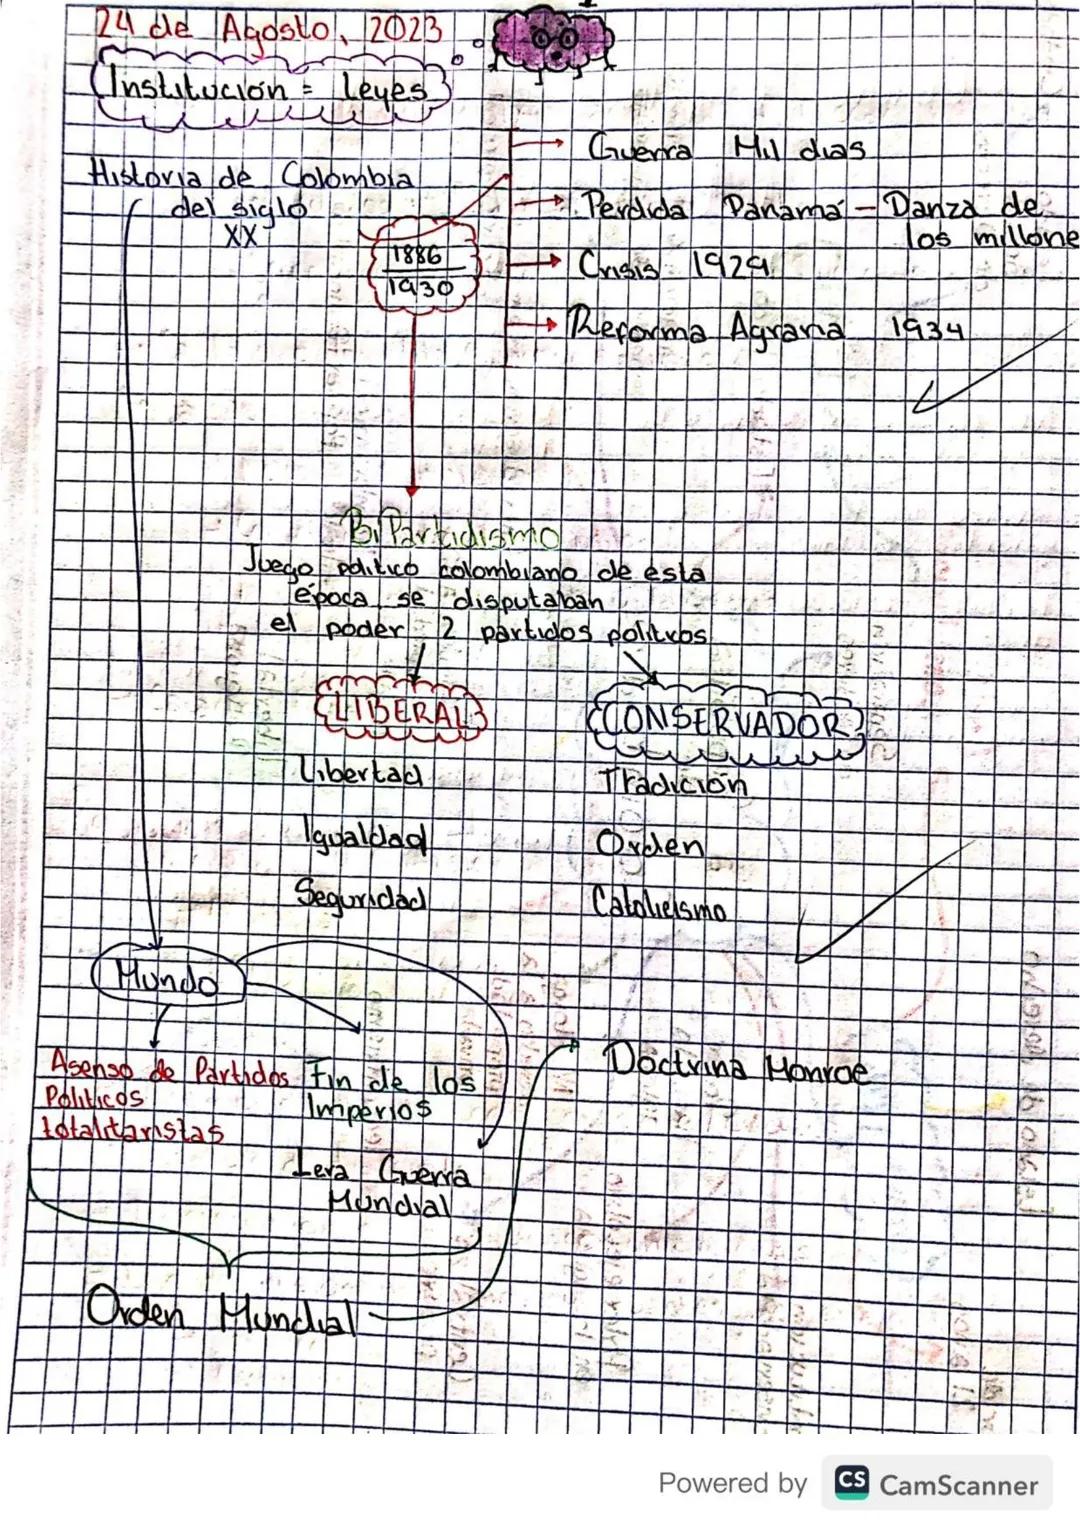 24 de Agosto, 2023
Institución = leyes
Historia de Colombia
del siglo
XX
1886
1930
Guerra Mil dias
Perdida Panamá - Danza de
los millone
Crisis 1929
Reforma Agraria 1934
BiPartidismo
Juego politico colombiano de esta
época se disputaban
el poder 2 partidos politicos
LIBERAL
CONSERVADOR
Libertad
Tradición
Igualdad
Orden
Seguridad
Catolicismo
Mundo
Asenso de Partidos
Politicos
totalitaristas
Fin de los
Imperios
1era Guerra
Mundial
Doctrina Monroe
Orden Mundial
Powered by CS CamScanner